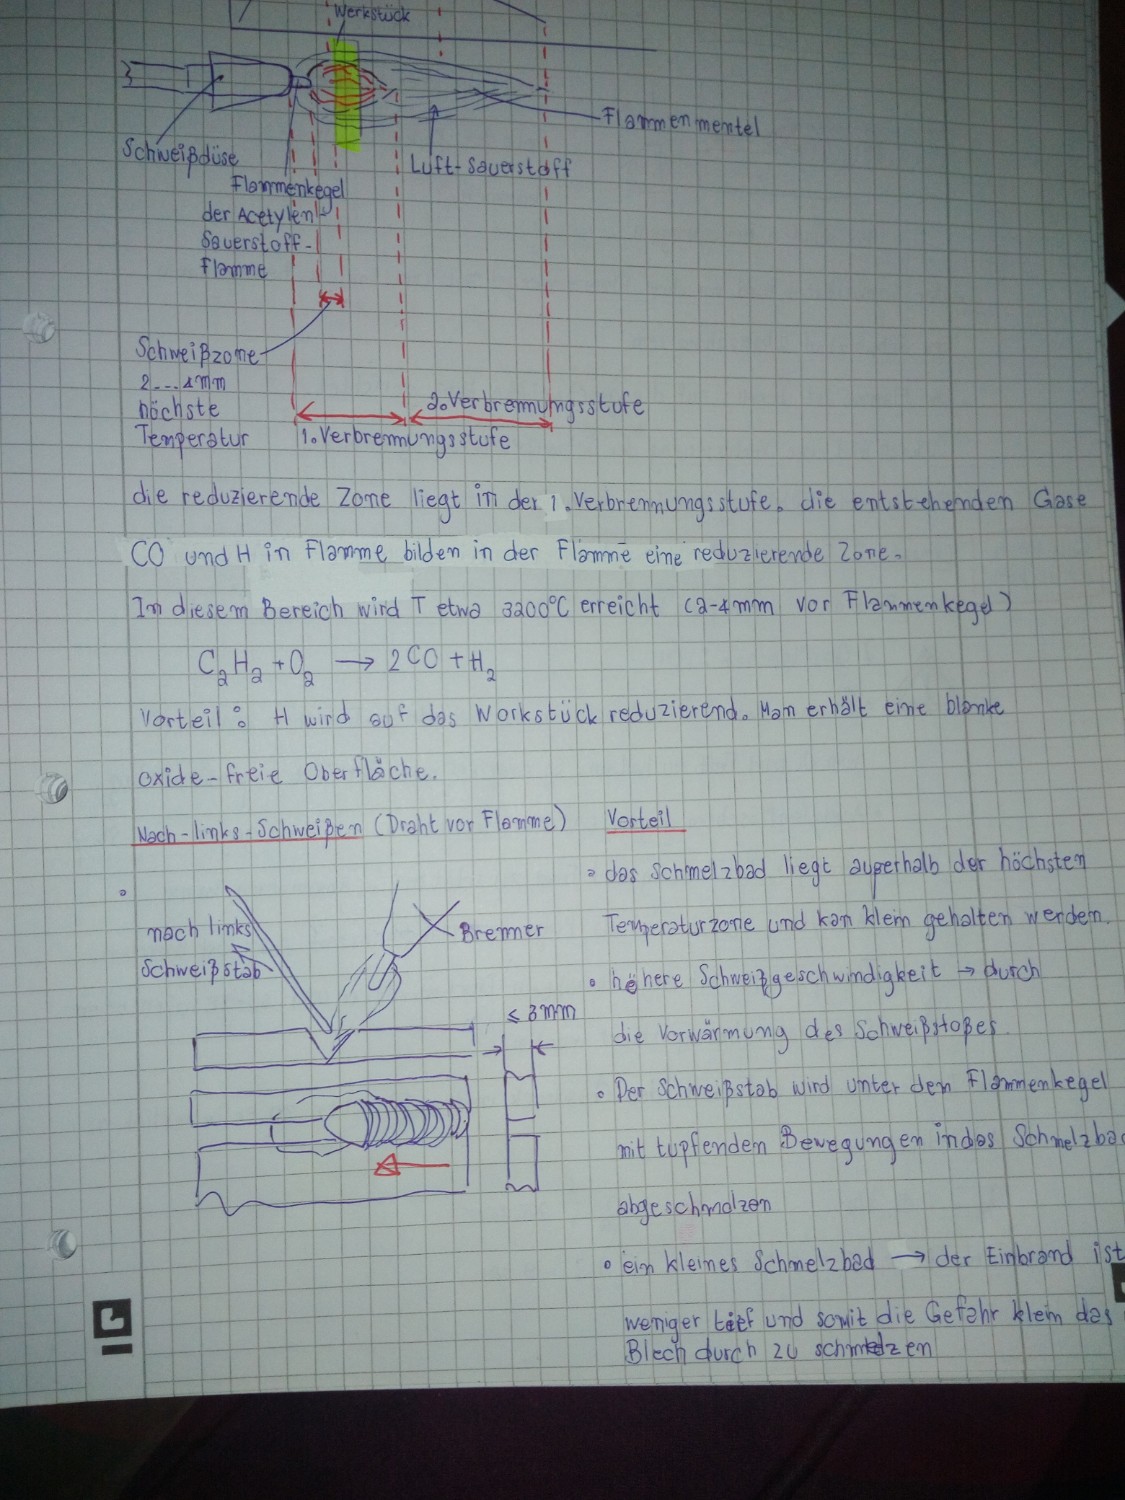 Werkstück
Flammenmentel
Schweißdüse
Luft-Sauerstoff
Flammenkegel
der Acetylen
Sauerstoff-
flamme
Schweißzone
2...4mm
höchste
Temperatur
2.Verbrennungsstufe
1.Verbrennungsstufe
die reduzierende Zone liegt in der 1.Verbrennungsstufe. die entstehenden Gase
CO und H in Flamme bilden in der Flamme eine reduzierende Zone.
In diesem Bereich wird T etwa 3200°C erreicht (2-4mm vor Flammenkegel)
C₂H₂ + O₂ → 2CO + H₂
Vorteil: H wird auf das Workstück reduzierend. Man erhält eine blanke
oxide-freie Oberfläche.
Nach-links-Schweißen (Draht vor Flamme)
nach links
Schweißstab
Brenner
≤ 3mm
Vorteil
• das Schmelzbad liegt außerhalb der höchsten
Temperaturzone und kan klein gehalten werden.
• höhere Schweißgeschwindigkeit → durch
die Vorwärmung des Schweißstoßes.
• Der Schweißstab wird unter dem Flammenkegel
mit tupfenden Bewegungen in das Schmelzbad
abgeschmolzen
• ein kleines Schmelzbad → der Einbrand ist
weniger tief und somit die Gefahr klein das
Blech durch zu schmelzen